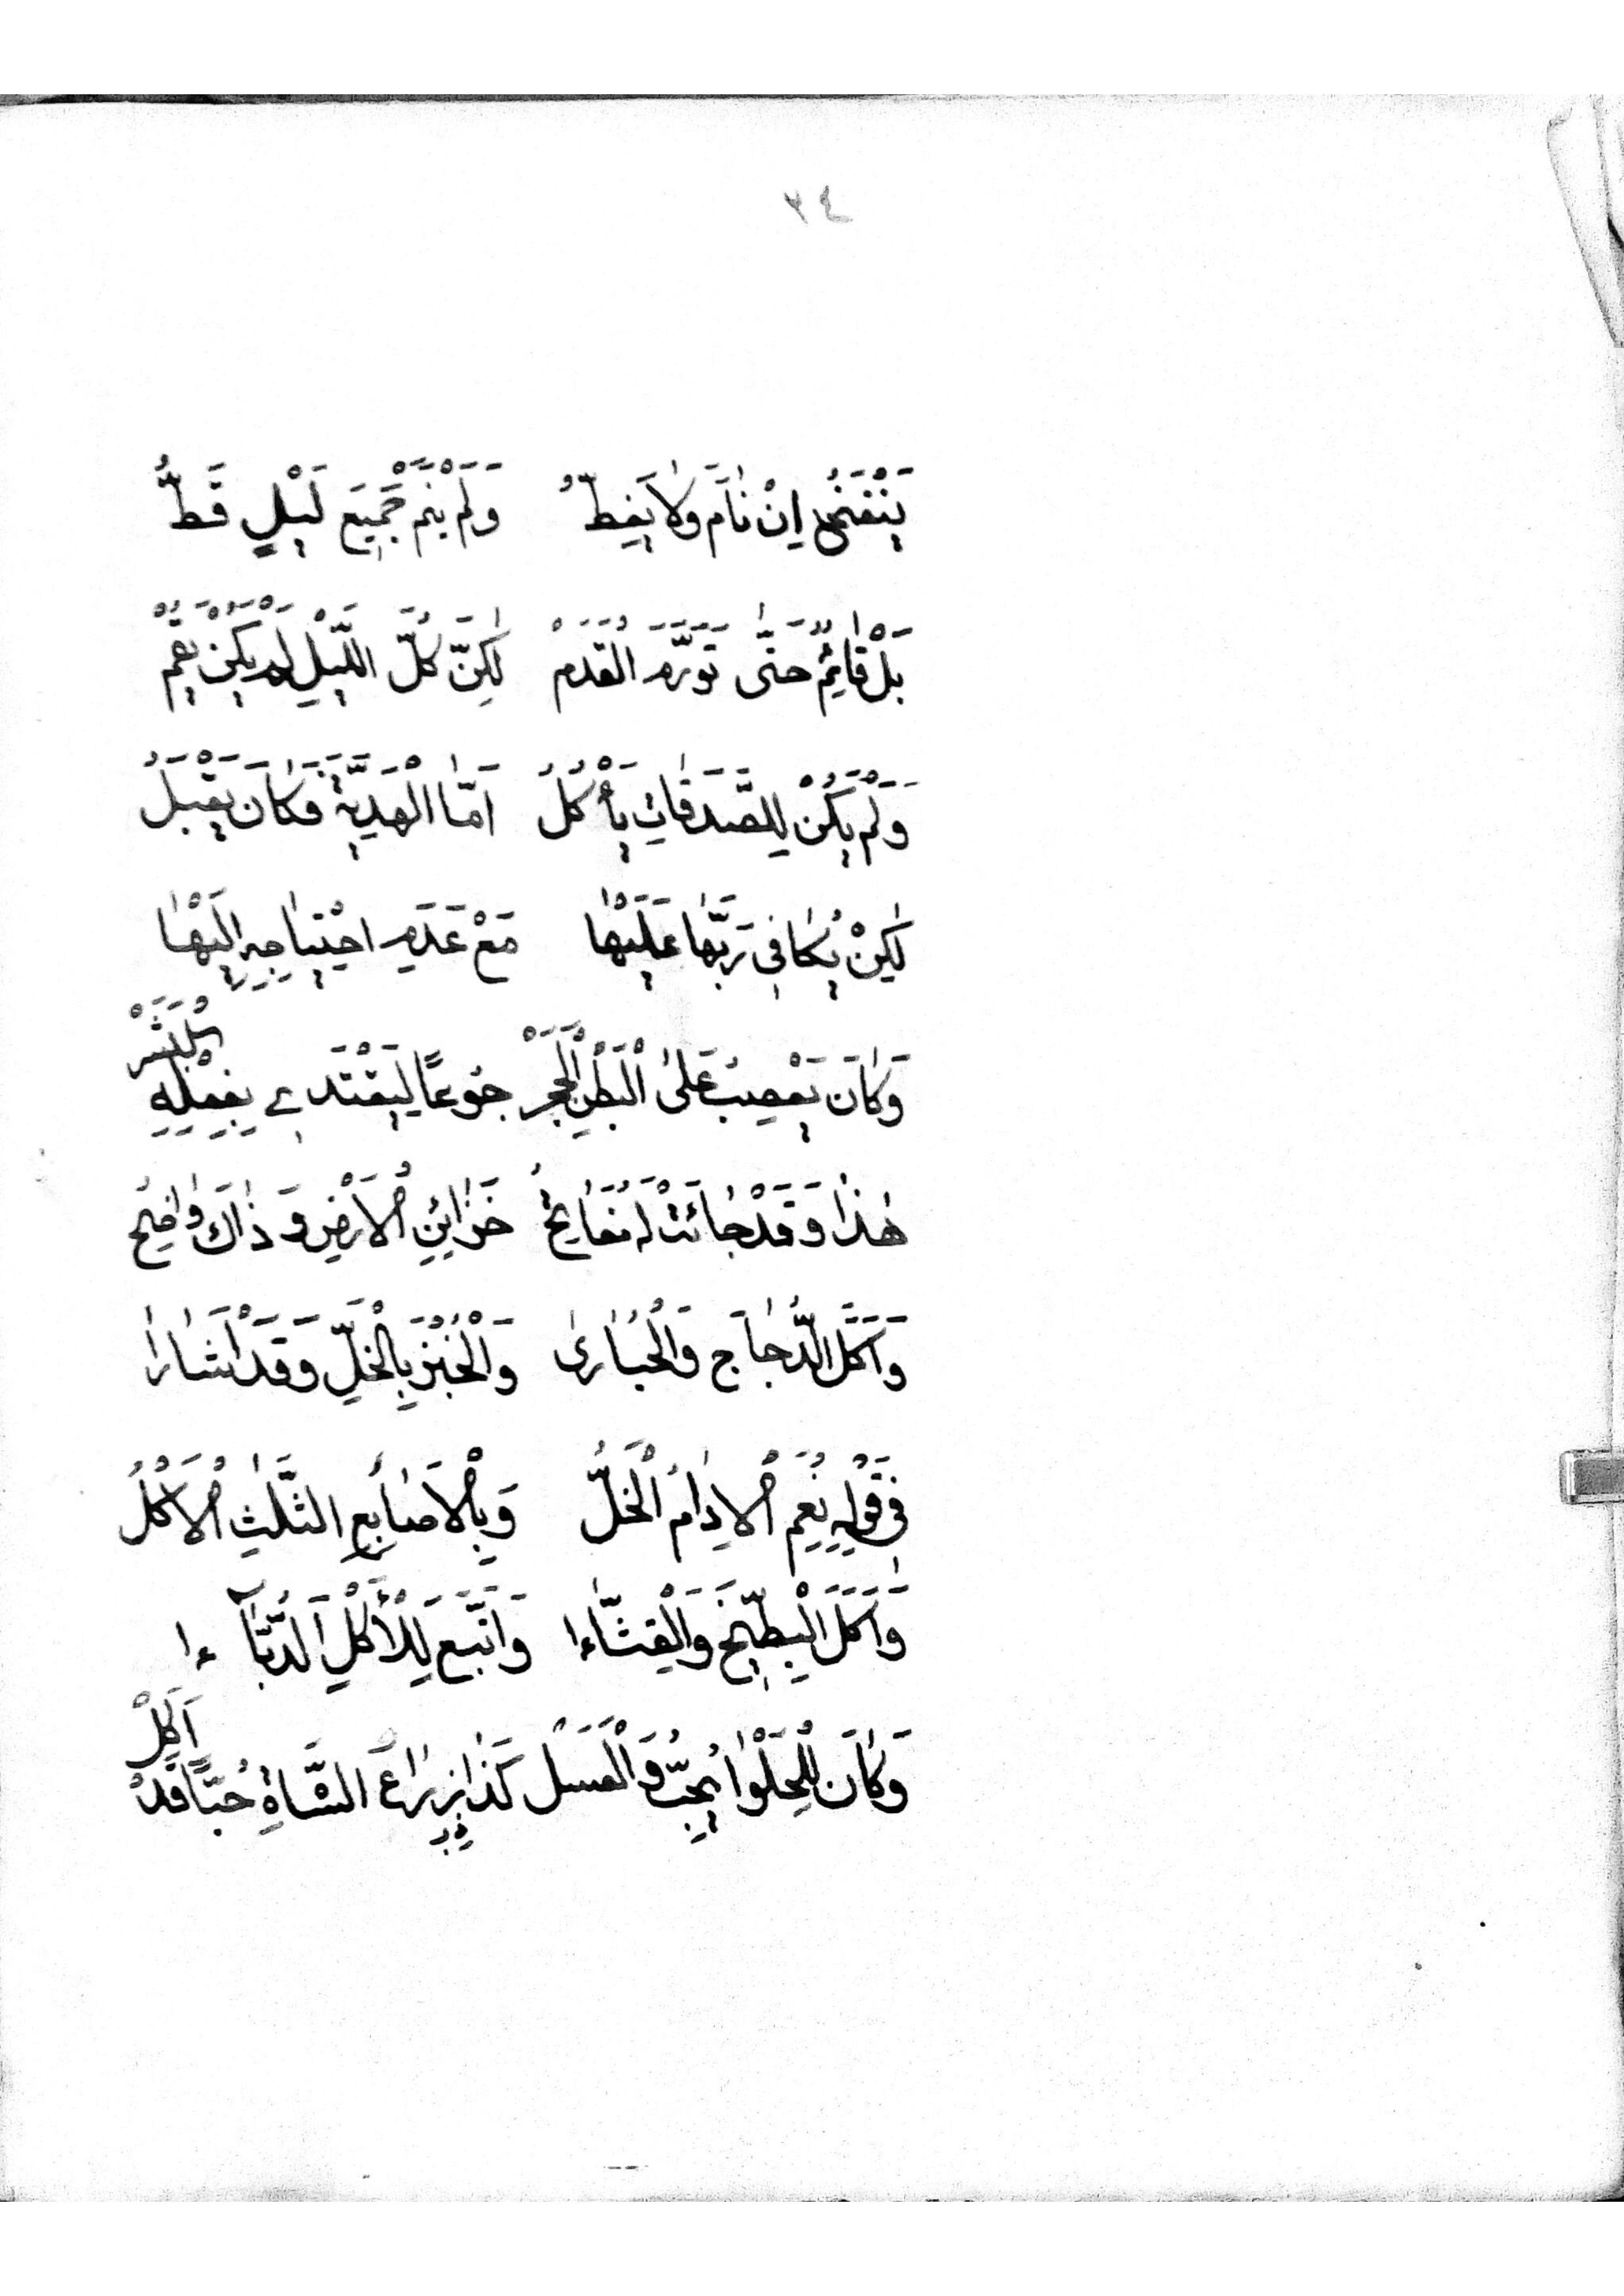 ٣٤
يَنْفَخُ اِنْ نَامَ وَلَا يَغِطُّ وَلَمْ يَنَمْ جَمِيعَ لَيْلٍ قَطُّ
بَلْ قَائِمٌ حَتّٰى تَوَرَّمَ الْقَدَمْ لٰكِنَّ كُلَّ اللَّيْلِ لَمْ يَكُنْ يَقُمْ
وَلَمْ يَكُنْ لِلصَّدَقَاتِ يَأْكُلُ اَمَّا الْهَدِيَّةَ فَكَانَ يَقْبَلُ
لٰكِنْ يُكَافِى رَبَّهَا عَلَيْهَا مَعْ عَدَمِ احْتِيَاجِهِ اِلَيْهَا
وَكَانَ يَعْصِبُ عَلَى الْبَطْنِ الْحَجَرْ جُوعًا لِيَقْتَدِى بِفِعْلِهِ الْبَشَرْ
هٰذَا وَقَدْ جَائَتْ لَهُ مَفَاتِحُ خَزَائِنِ الْاَرْضِ وَذَاكَ وَاضِحُ
وَاَكَلَ الدَّجَاجَ وَالْحُبَارٰى وَالْخُبْزَ بِالْخَلِّ وَقَدْ اَشَارَا
فِى قَوْلِهِ نِعْمَ الْاِدَامُ الْخَلُّ وَبِالْاَصَابِعِ الثَّلٰثِ الْاَكْلُ
وَاَكَلَ الْبِطِّيخَ وَالْقِثَّاءَا وَاتَّبَعَ لِلْاَكْلِ الدُّبَّآءَا
وَكَانَ لِلْحَلْوَا يُحِبُّ وَالْعَسَلْ كَذَا ذِرَاعَ الشَّاةِ حُبًّا قَدْ اَكَلْ